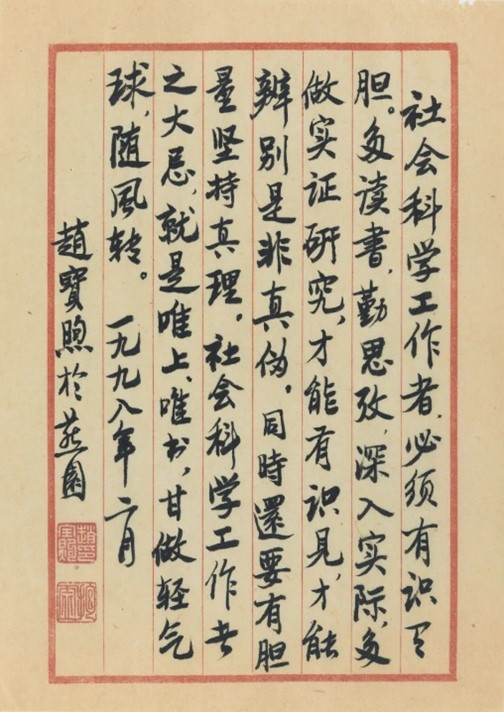 社会科学工作者,必须有识
胆。多读书,勤思攷,深入实际,多
做实证研究,才能有识见,才能
辨别是非真伪。同時還要有胆
量坚持真理。社会科学工作者
之大忌,就是唯上、唯书,甘做轻气
球,随風转。一九九八年六月
趙寶煦於燕園